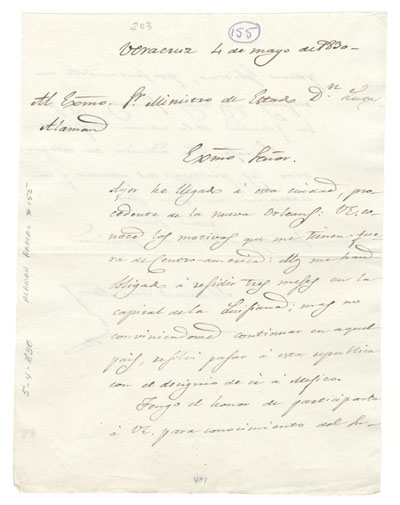 203
155
Veracruz 4 de mayo de 1830-
Al Exmo. Sr. Ministro de Estado Dn. Lucas
Alaman
Exmo. Señor.
Ayer he llegado á esta ciudad, pro
cedente de la nueva Orleans: VE. co
noce los motivos que me tienen fue
ra de Centro-america: Ellos me han
obligado á residir tres meses en la
capital de la Luisiana; mas no
conviniendome continuar en aquel
pais, resolví pasar á esta republica
con el designio de ir á Mexico.
Tengo el honor de participarlo
á VE. para conocimiento del Su-
ALAMAN PAPERS #155
5-4-830
481